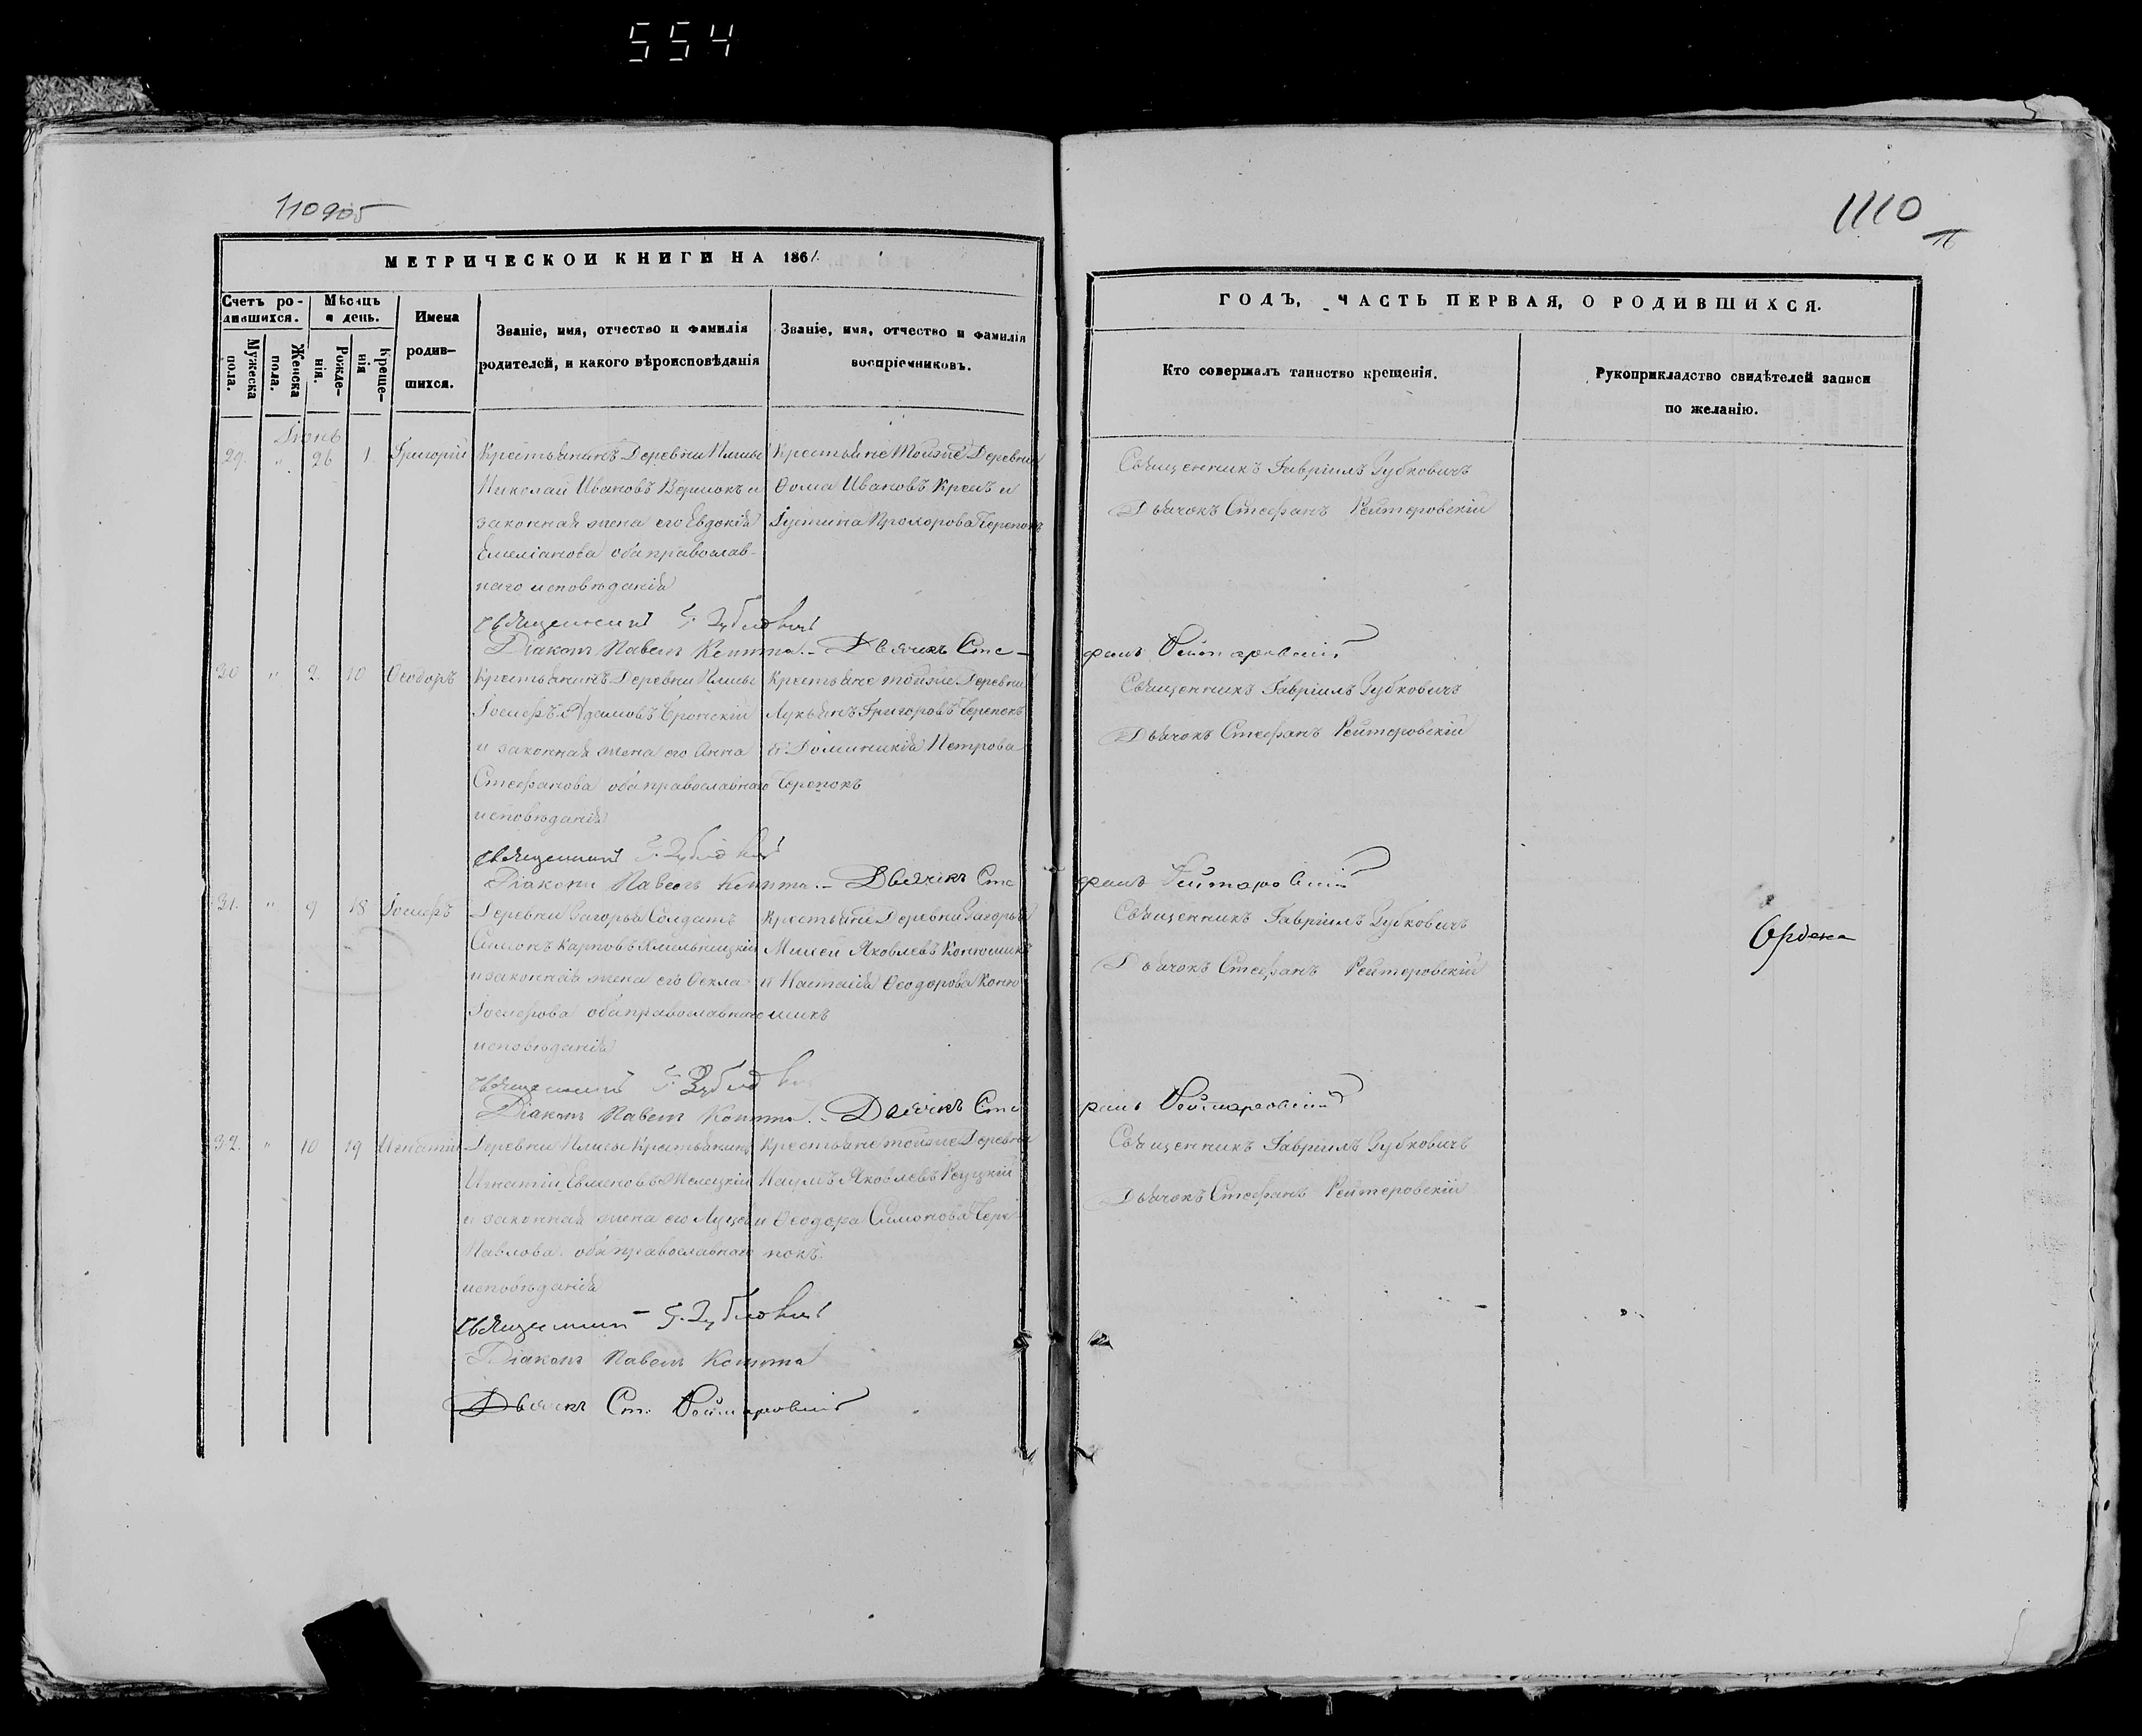 554
110905
МЕТРИЧЕСКОЙ КНИГИ НА 1861.
Счетъ родившихся.
Мѣсяцъ и день.
Имена родившихся.
Званіе, имя, отчество и фамилія
родителей, и какого вѣроисповѣданія
Званіе, имя, отчество и фамилія
воспріемниковъ.
Мужеска пола.
Женска пола.
Рожденія.
Крещенія
29. " 26 1. Григорій
Крестьянинъ Деревни
Николай Ивановъ и
законная жена его Евдокія
Емеліанова оба православ-
наго исповѣданія
Крестьяне тойже Деревни
Ѳома Ивановъ и
Іустина Прохорова Черепокъ
Священникъ Г. Зубковичъ
Діаконъ Павелъ Дьячекъ Сте-
30 " 2. 10 Ѳеодоръ
Крестьянинъ Деревни
Іосифъ Адамовъ
и законная жена его Анна
Стефанова оба православнаго
исповѣданія
Крестьяне тойже Деревни
Лукьянъ Григоровъ Черепокъ
и Доминикія Петрова
Черепокъ
Священникъ Г. Зубковичъ
Діаконъ Павелъ Дьячекъ Сте
31. " 9 18 Іосифъ
Деревни Загорья Солдатъ
Симонъ Карповъ Хмельницкій
и законная жена его Ѳекла
Іосифова оба православнаго
исповѣданія
Крестьяне Деревни Загорья
Михей Яковлевъ Конюшикъ
и Настасія Ѳеодорова Коню
шикъ
Священникъ Г. Зубковичъ
Діаконъ Павелъ Дьячекъ Сте
32. " 10 19 Игнатій
Деревни Крестьянинъ
Игнатій
и законная жена его
Павлова оба православнаго
исповѣданія
Крестьяне тойже Деревни
Наумъ Яковлевъ
и Ѳеодора Симонова Чере
покъ.
Священникъ Г. Зубковичъ
Діаконъ Павелъ
Дьячекъ Ст. Рейтеровскій
1110
ГОДЪ, ЧАСТЬ ПЕРВАЯ, О РОДИВШИХСЯ.
Кто совершалъ таинство крещенія.
Рукоприкладство свидѣтелей записи
по желанію.
Священникъ Гавріилъ Зубковичъ
Дьячокъ Стефанъ Рейтеровскій
фанъ Рейтеровскій
Священникъ Гавріилъ Зубковичъ
Дьячокъ Стефанъ Рейтеровскій
фанъ Рейтеровскій
Священникъ Гавріилъ Зубковичъ
Дьячокъ Стефанъ Рейтеровскій
фанъ Рейтеровскій
Священникъ Гавріилъ Зубковичъ
Дьячокъ Стефанъ Рейтеровскій